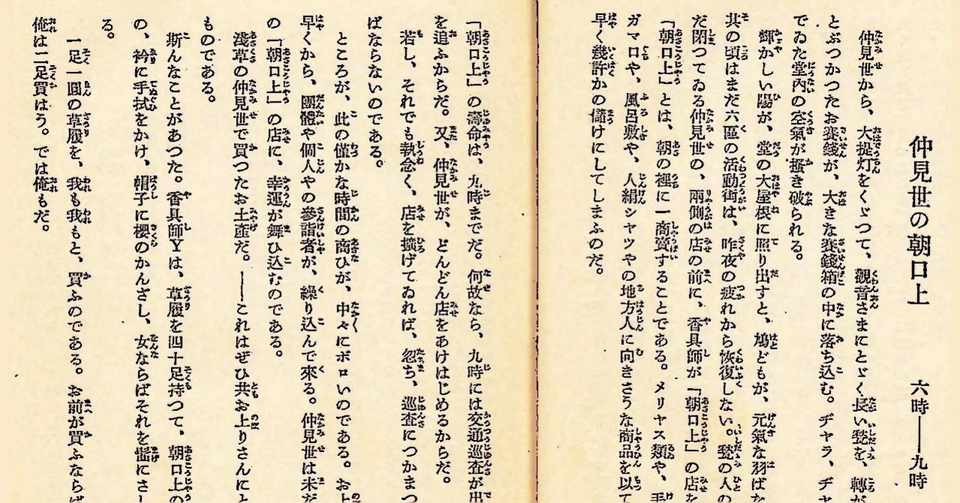 仲見世の朝口上　六時――九時
仲見世から、大提灯をくゞつて、觀音さまにとゞく長い甃を、轉が
とぶつかつたお賽錢が、大きな賽錢箱の中に落ち込む。ヂヤラ、ヂヤ
でゐた堂內の空氣が搔き破られる。
輝かしい陽が、堂の大屋根に照り出すと、鳩どもが、元氣な羽ばた
其の頃はまだ六區の活動街は、昨夜の疲れから恢復しない。甃の人の
だ閉つてゐる仲見世の、兩側の店の前に、香具師が「朝口上」の店を
「朝口上」とは、朝の裡に一商賣することである。メリヤス類や、
ガマロや、風呂敷や、人絹シヤツやの地方人に向きさうな商品を以て
早く幾許かの儲けにしてしまふのだ。
「朝口上」の壽命は、九時までだ。何故なら、九時には交通巡査が出
を追ふからだ。又、仲見世が、どんどん店をあけはじめるからだ。
若し、それでも執念く、店を擴げてゐれば、忽ち、巡査につかまつ
ばならないのである。
ところが、此の僅かな時間の商ひが、中々にボロいのである。お上
早くから、團體や個人やの參詣者が、繰り込んで來る。仲見世は未だ
の「朝口上」の店に、幸運が舞ひ込むのである。
淺草の仲見世で買つたお土產だ。――これはぜひ共お上りさんにと
ものである。
斯んなことがあつた。香具師Yは、草履を四十足持つて、朝口上の
の、衿に手拭をかけ、帽子に櫻のかんざし、女ならばそれを髷にさし
る。
一足一圓の草履を、我も我もと、買ふのである。お前が買ふならば
俺は二足買はう。では俺もだ。